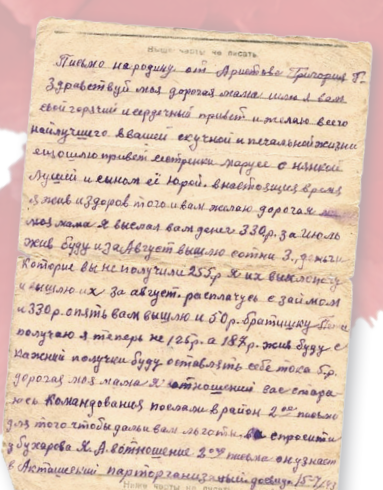 Выше черты не писать
Письмо на родину от Аристова Григория Г.
Здравствуй моя дорогая мама шлю я вам
свой горячий и сердечный привет и желаю всего
найлучшего в вашей скучной и печальной жизни
ещо шлю привет сестренки марусе с нянкой
лушей и сыном её Юрой. внастоящия время
я жив и здоров того и вам желаю дорогая
моя мама я выслал вам денег 330р. за июль
жив буду и за Август вышлю сотни 3, деньги
которие вы не получили 255р я их выхлопочу
и вышлю их за август. расплачусь с займом
и 330р. опять вам вышлю и 50р. братишку
получаю я теперь не 125р. а 187р. жив буду с
каждой получки буду оставлять себе тока 5р.
дорогая моя мама я отношений вас стара-
юсь командования послали в район 2ое письмо
для того чтобы дали вам льготы. спросити
у бухарова Я. А. вотношение 2ого письма он узнает
в Акташевский парторганизации
Ниже черты не писать